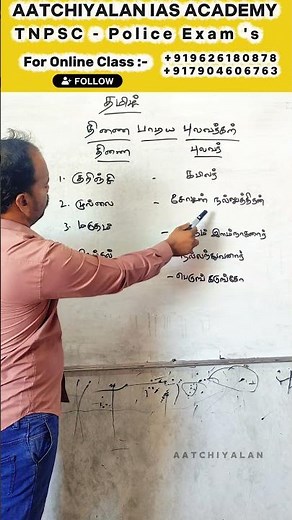 AATCHIYALAN IAS ACADEMY
TNPSC - Police Exam 's
For Online Class :- +919626180878
+917904606763
FOLLOW
தமிழ்
திணை பாடிய புலவர்கள்
திணை புலவர்
1. குறிஞ்சி - கபிலர்
2. முல்லை - சோழன் நல்லுருத்திரன்
3. மருதம் - இளநாகனார்
நல்லந்துவனார்
- பெருங் கடுங்கோ
AATCHIYALAN